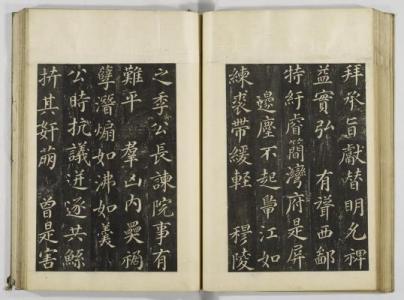 拜承旨獻替明允裨
益實弘 有聲西鄙
特紆睿簡灣府是屏
邊塵不起江如
練裘帶緩輕 穆陵
之季公長諫院事有
難平 羣凶內奰禍
孽潛煽如沸如羹
公時抗議迸逐共鯀
折其奸萌 曾是害